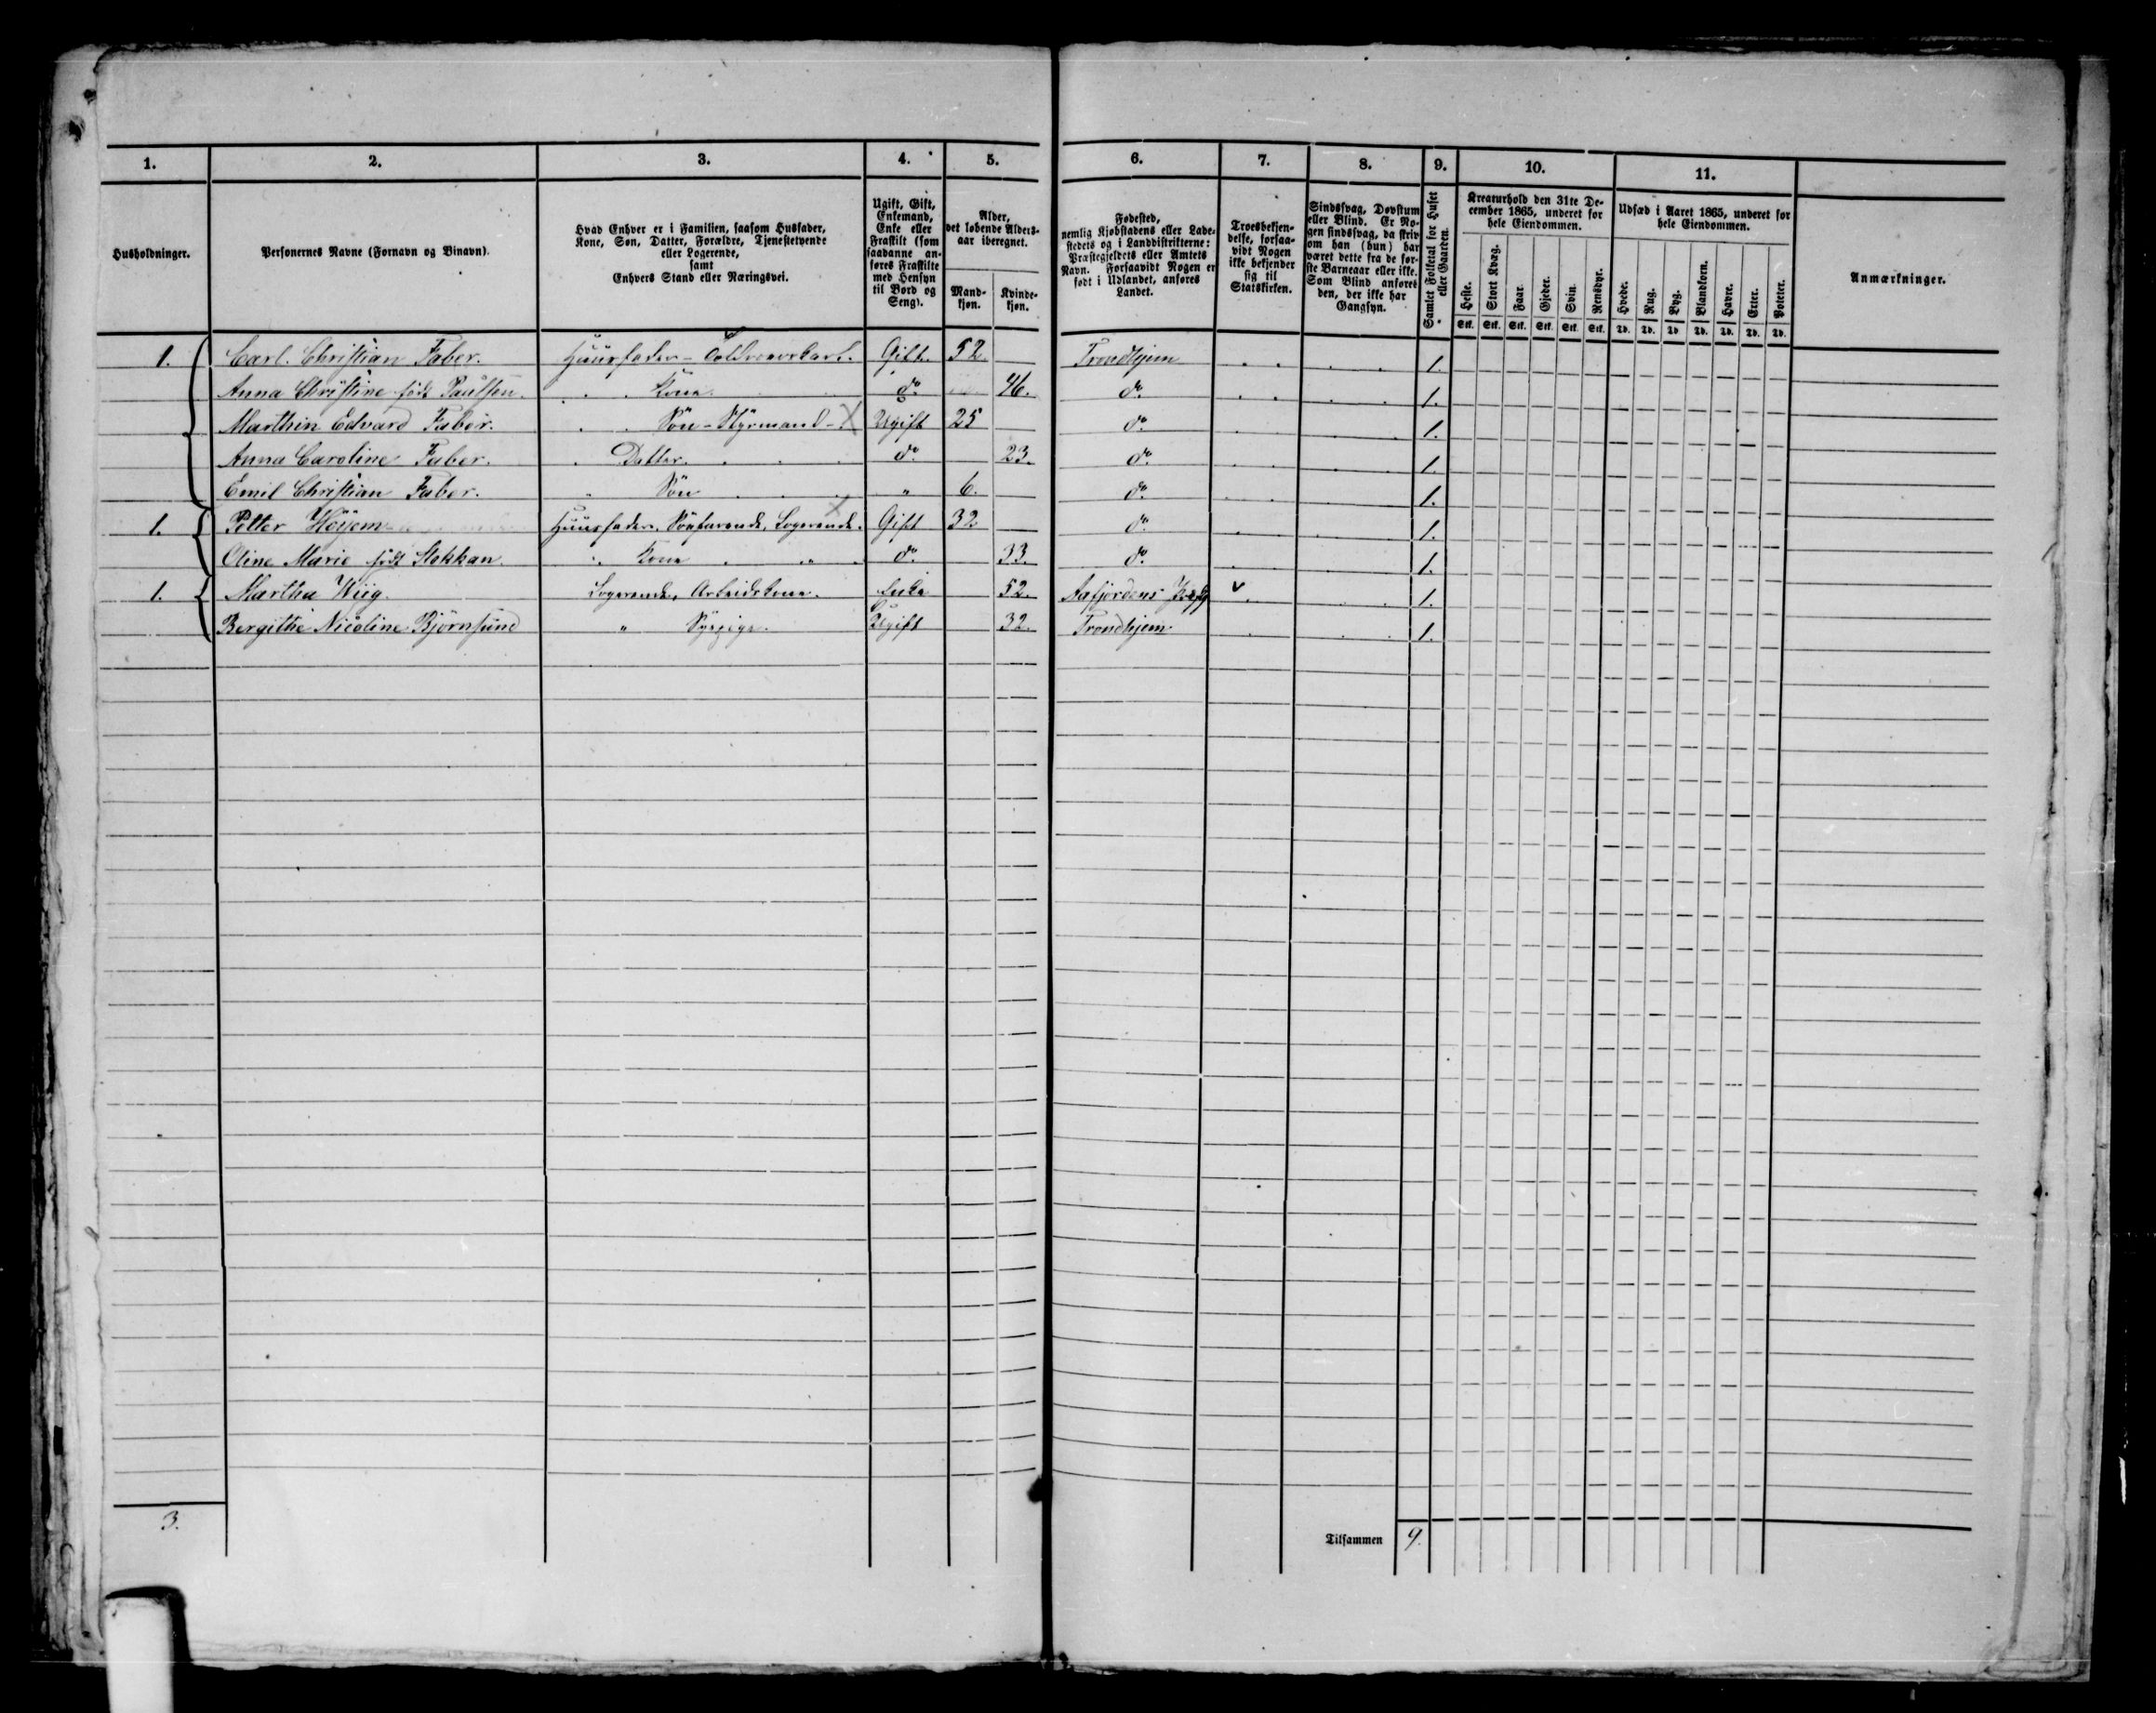 1. 2. 3. 4. 5. 6. 7. 8. 9. 10. 11.
Husholdninger.
Personernes Navne (Fornavn og Binavn).
Hvad Enhver er i Familien, saasom Husfader,
Kone, Søn, Datter, Forældre, Tjenestetyende
eller Logerende,
samt
Enhvers Stand eller Næringsvei.
Ugift, Gift,
Enkemand,
Enke eller
Fraskilt (som
saadanne an-
føres Fraskilte
med Hensyn
til Bord og
Seng).
Alder,
det løbende Alders-
aar iberegnet.
Mand-
kjøn.
Kvinde-
kjøn.
Fødested,
nemlig Kjøbstadens eller Lade-
stedets og i Landdistrikterne:
Præstegjeldets eller Amtets
Navn. Forsaavidt Nogen er
født i Udlandet, anføres
Landet.
Troesbekjen-
delse, forsaa-
vidt Nogen
ikke bekjender
sig til
Statskirken.
Sindssvag, Døvstum
eller Blind. Er No-
gen sindssvag, da skriv
om han (hun) har
været dette fra de før-
ste Barneaar eller ikke.
Som Blind anføres
den, der ikke har
Gangsyn.
Samlet Folketal for Huset
eller Gaarden.
Kreaturhold den 31te De-
cember 1865, underet for
hele Eiendommen.
Heste. Stort Kvæg. Faar. Gjeder. Svin. Rensdyr.
Stk. Stk. Stk. Stk. Stk. Stk.
Udsæd i Aaret 1865, underet for
hele Eiendommen.
Hvede. Rug. Byg. Blandkorn. Havre. Erter. Poteter.
Td. Td. Td Td. Td. Td. Td.
Anmærkninger.
1. Carl. Christian Faber. Huusfader - Gift. 52. Trondhjem 1.
Anna Christine født Paulsen. Kone do. 46. do. 1.
Marthin Edvard Faber. Søn - Styrmand - Ugift 25 do. 1.
Anna Caroline Faber. Datter. do. 23. do. 1.
Emil Christian Faber. Søn " 6. do. 1.
1. Petter Höijem Huusfader. Søefarende, Logerende. Gift 32 do. 1.
Oline Marie født Stokkan. Kone " do. 33. do. 1.
1. Martha Wiig. Logerende, Arbeidskone. Enke 52. Aafjordens 1.
Bergithe Nicoline Bjørnsund " Sypige. Ugift 32. Trondhjem. 1.
3. Tilsammen 9.